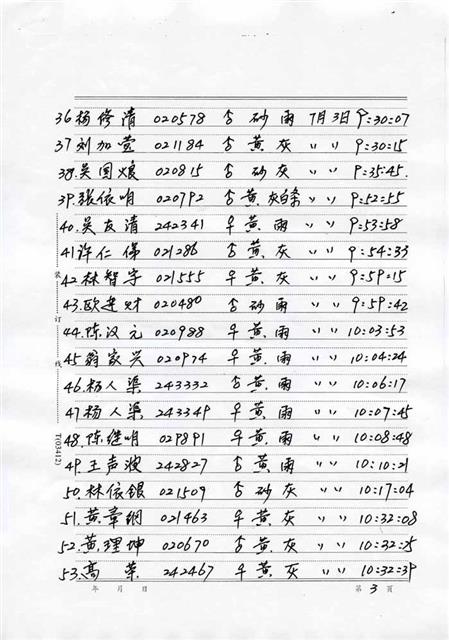 36 杨修清 020578 吉 砂 雨 7月3日 9:30:07
37 刘加萱 021184 吉 黄 灰 〃 9:30:15
38 吴国烺 020815 吉 砂 灰 〃 9:35:45.
39.张依明 020792 吉 黄 灰白条 〃 9:52:55
40.吴友清 242341 早 黄 雨 〃 9:53:58
41 许仁俤 021286 吉 黄 灰 〃 9:54:33
42 林智宇 021555 早 黄 灰 〃 9:59:15
43.欧建财 020480 吉 砂 雨 9:59:42
44.陈汉元 020988 早 黄 雨 〃 10:03:53
45 翁家兴 020974 早 黄 雨 〃 10:04:24
46.杨人渠 243332 吉 黄 雨 〃 10:06:17
47 杨人渠 243349 早 黄 雨 〃 10:07:45
48.陈继明 029891 早 黄 雨 〃 10:08:48
49.王声波 242827 吉 黄 雨 〃 10:10:21
50.林依银 021509 吉 砂 灰 〃 10:17:04
51.黄章纲 021463 早 黄 灰 〃 10:32:08
52.黄理坤 020670 吉 黄 灰 〃 10:32:25
53.高荣 242467 早 黄 灰 〃 10:32:39
年 月 日 第 3 页
装 订 线
T(03412)